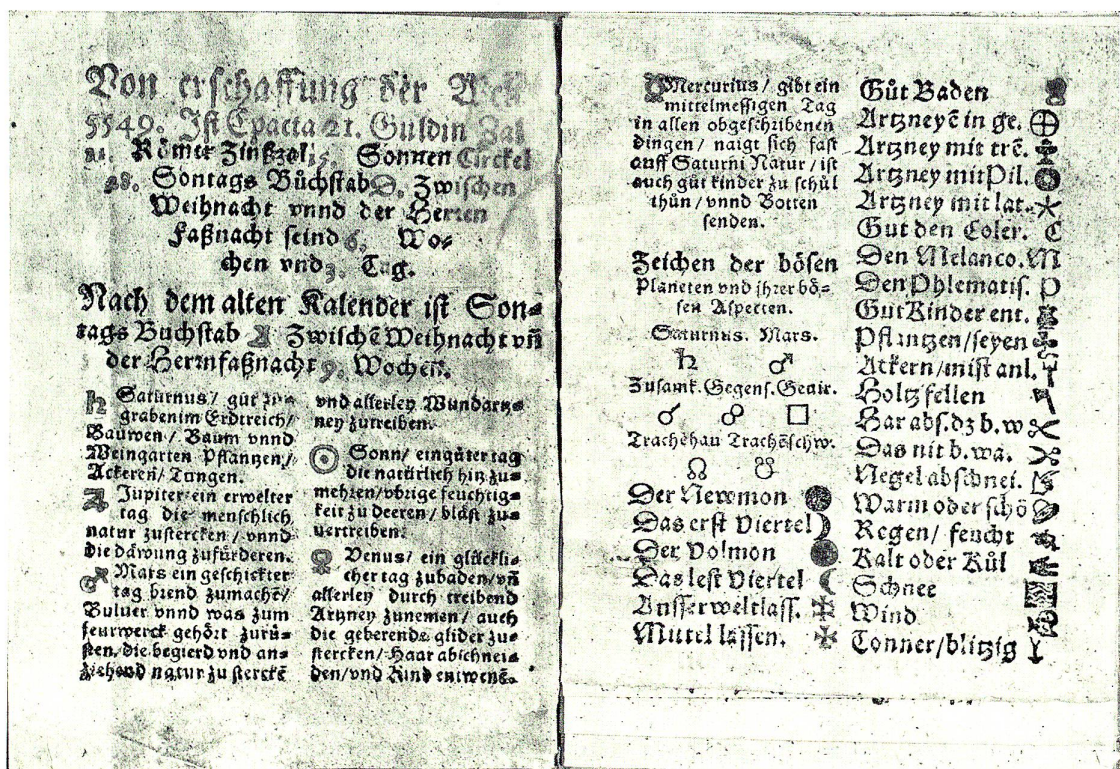 Von erschaffung der Welt
5549. Ist Epacta 21. Guldin Zal
11. Römer Zinßzal 15. Sonnen Circkel
28. Sontags Bůchstab D. Zwischen
Weihnacht vnnd der Herren
Faßnacht seind 6. Wo-
chen vnd 3. Tag.
Nach dem alten Kalender ist Son-
tags Buchstab Zwischē Weihnacht vñ
der Herrnfaßnacht 9. Wochen.
♄ Saturnus / gůt zu
graben im Erdtreich /
Bauwen / Baum vnnd
Weingarten Pflantzen /
Ackeren / Tungen.
♃ Jupiter ein erwelter
tag die menschlich
natur zustercken / vnnd
die däwung zufürderen.
♂ Mars ein geschickter
tag brend zumachē /
Buluer vnnd was zum
feurwerck gehört zurü-
sten, die begierd vnd an-
ziehend natur zu sterckē
vnd allerley Wundartz-
ney zutreiben.
☉ Sonn / ein gůter tag
die natürlich hitz zu-
mehren / vbrige feuchtig-
keit zu deeren / bläst zu-
uertreiben.
♀ Venus / ein glückli-
cher tag zubaden / vñ
allerley durch treibend
Artzney zunemen / auch
die geberende glider zu-
stercken / Haar abschnei-
den / vnd Kind entwenē.
☿ Mercurius / gibt ein
mittelmessigen Tag
in allen obgeschribenen
dingen / naigt sich fast
auff Saturni Natur / ist
auch gůt kinder zu schůl
thůn / vnnd Botten
senden.
Zeichen der bösen
Planeten vnd jhrer bö-
sen Aspecten.
Saturnus. Mars.
♄ ♂
Zusamk. Gegens. Geuir.
☌ ☍ □
Trachēhau Trachēschw.
☊ ☋
Der Newmon
Das erst Viertel
Der Volmon
Das lest Viertel
Ausserweltlass.
Mittel lassen.
Gůt Baden
Artzneyē in ge.
Artzney mit trē.
Artzney mit Pil.
Artzney mit lat.
Gut den Coler. C
Den Melanco. M
Den Phlematis. P
Gut Kinder ent.
Pflantzen / seyen
Ackern / mist anl.
Holtz fellen
Har abs. dz b. w
Das nit b. wa.
Negel abschnei.
Warm oder schö
Regen / feucht
Kalt oder Kůl
Schnee
Wind
Tonner / blitzig